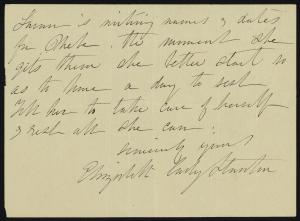 is writing names & dates
for Phebe. the moment she
gets them she better start so
as to have a day to rest
Tell her to take care of herself
& rest all she can.
sincerely yours
Elizabeth Cady Stanton